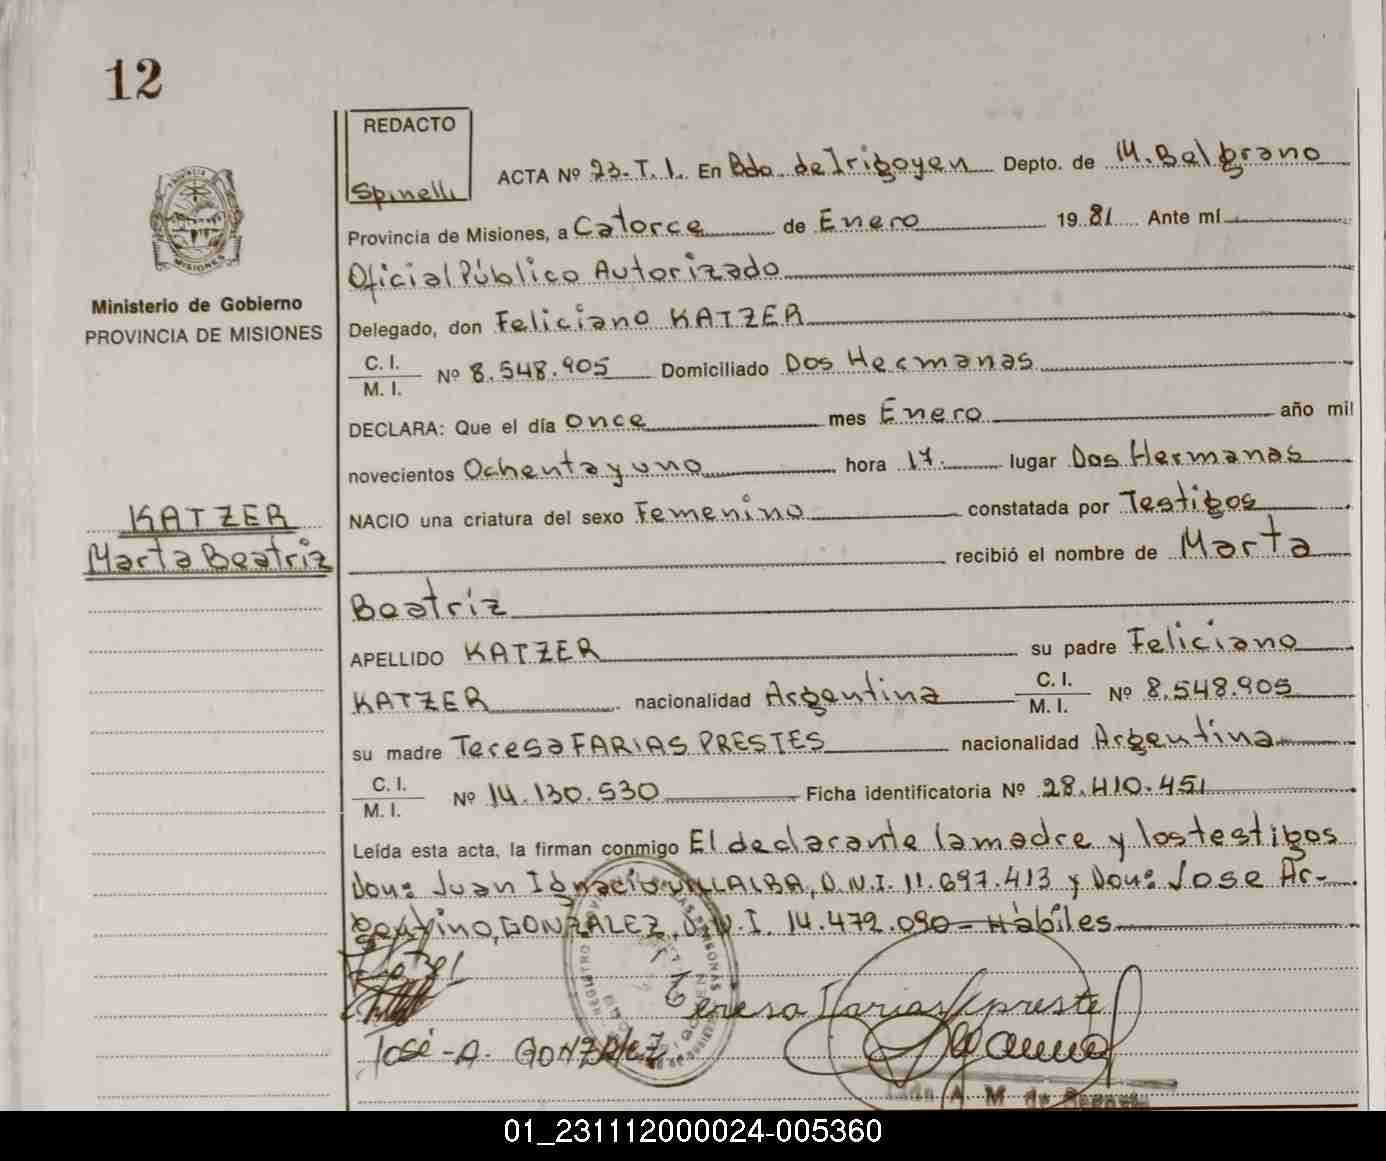 12
REDACTO
Spinelli
ACTA Nº 23-T.1. En Bdo. de Irigoyen Depto. de M. Belgrano
Provincia de Misiones, a Catorce de Enero 1981 Ante mí
Oficial Público Autorizado
MISIONES
Ministerio de Gobierno
PROVINCIA DE MISIONES
Delegado, don Feliciano KATZER
C. I.
M. I.
Nº 8.548.905 Domiciliado Dos Hermanas
DECLARA: Que el día once mes Enero año mil
novecientos Ochenta y uno hora 17. lugar Dos Hermanas
KATZER
Marta Beatriz
NACIO una criatura del sexo Femenino constatada por Testigos
recibió el nombre de Marta
Beatriz
APELLIDO KATZER su padre Feliciano
KATZER nacionalidad Argentina C. I. M. I. Nº 8.548.905
su madre Teresa FARIAS PRESTES nacionalidad Argentina
C. I.
M. I.
Nº 14.130.530 Ficha identificatoria Nº 28.410.451
Leída esta acta, la firman conmigo El declarante la madre y los testigos
Don: Juan Ignacio VILLALBA, D.N.I. 11.697.413 y Don: Jose Ar-
gentino, GONZALEZ, D.N.I. 14.472.090 - Hábiles
Teresa Farias
José - A. GONZALEZ
01_231112000024-005360